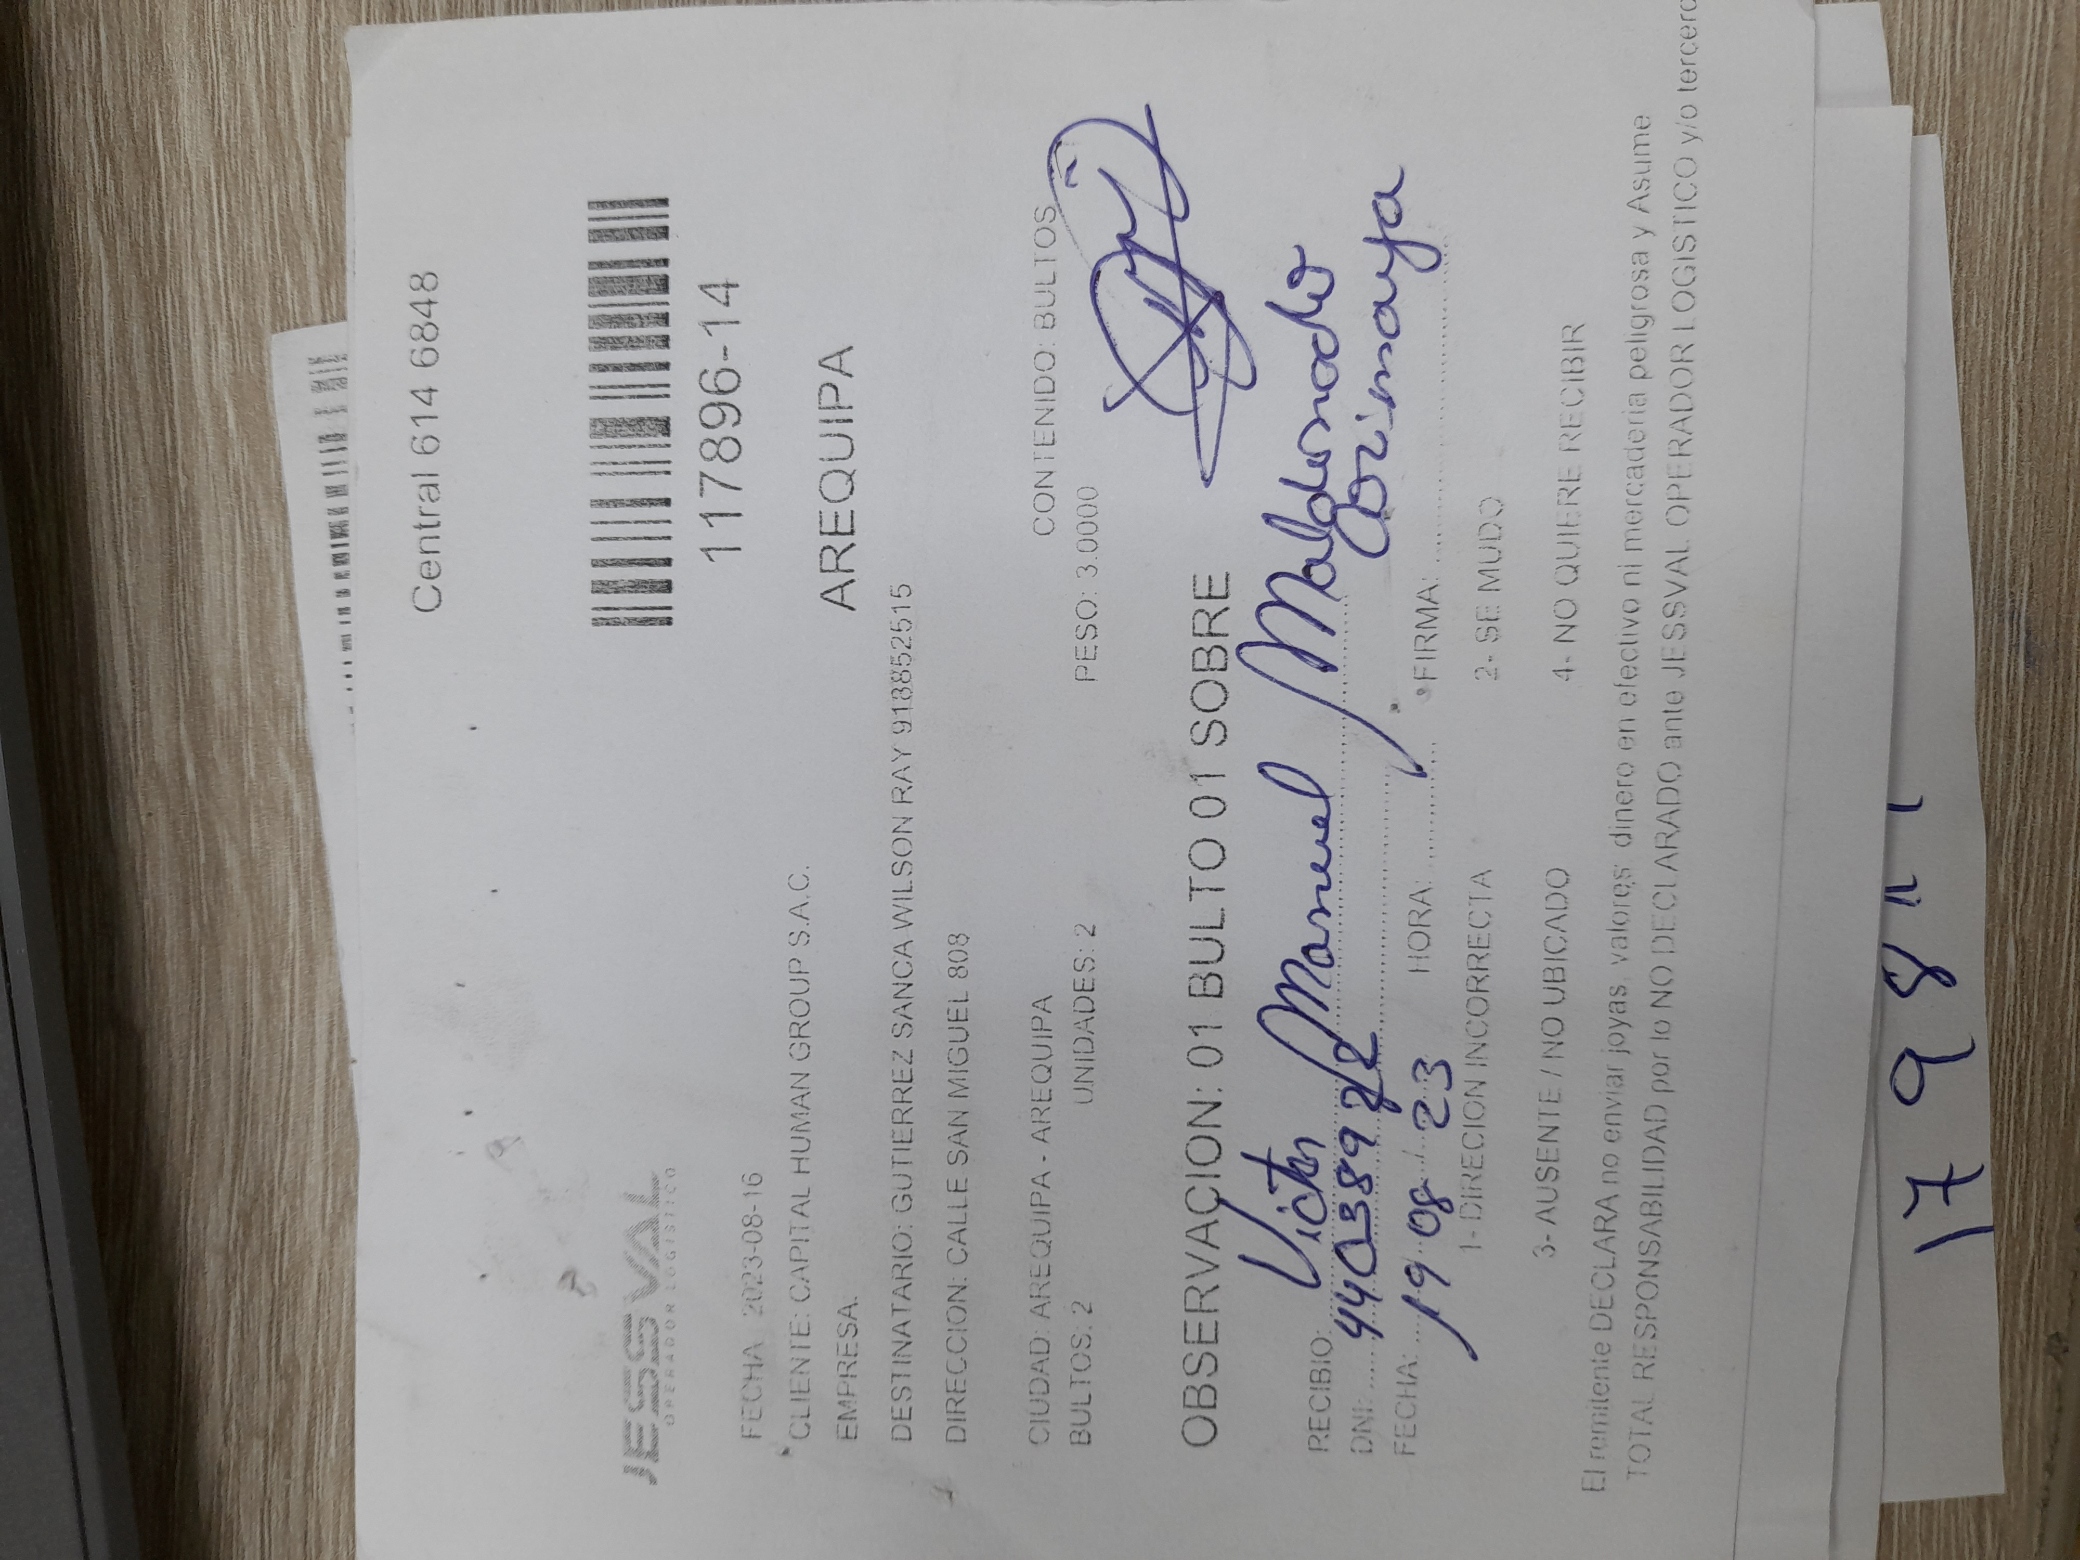 Central 614 6848
JESSVAL
OPERADOR LOGISTICO
117896-14
FECHA 2023-08-16
CLIENTE: CAPITAL HUMAN GROUP S.A.C.
EMPRESA:
AREQUIPA
DESTINATARIO: GUTIERREZ SANCA WILSON RAY 918852515
DIRECCION: CALLE SAN MIGUEL 808
CIUDAD: AREQUIPA - AREQUIPA
CONTENIDO: BULTOS
BULTOS: 2 UNIDADES: 2 PESO: 3.0000
OBSERVACION: 01 BULTO 01 SOBRE
RECIBIO: Victor Manuel Maldonado
DNI: Corimaya
FECHA: 19 / 08 / 23 HORA: FIRMA:
1- DIRECION INCORRECTA 2- SE MUDO
3- AUSENTE / NO UBICADO 4- NO QUIERE RECIBIR
El remitente DECLARA no enviar joyas, valores, dinero en efectivo ni mercaderia peligrosa y Asume
TOTAL RESPONSABILIDAD por lo NO DECLARADO ante JESSVAL OPERADOR LOGISTICO y/o tercero